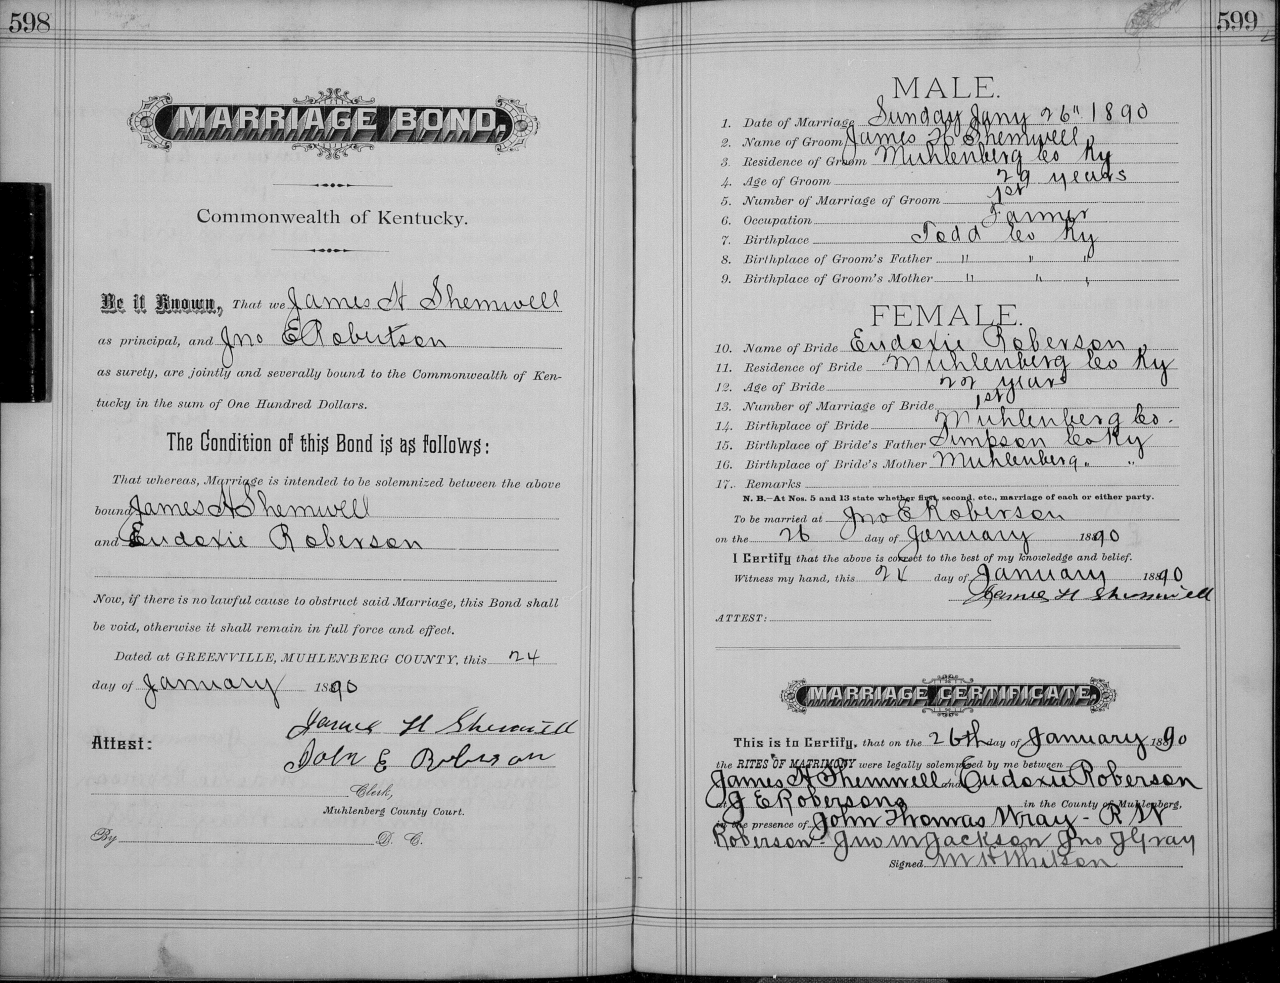 598
MARRIAGE BOND.
Commonwealth of Kentucky.
Be it Known, That we James H Shemwell
as principal, and Jno E Robertson
as surety, are jointly and severally bound to the Commonwealth of Ken-
tucky in the sum of One Hundred Dollars.
The Condition of this Bond is as follows:
That whereas, Marriage is intended to be solemnized between the above
bound James H Shemwell
and Eudoxie Roberson
Now, if there is no lawful cause to obstruct said Marriage, this Bond shall
be void, otherwise it shall remain in full force and effect.
Dated at GREENVILLE, MUHLENBERG COUNTY, this 24
day of January 1890
James H Shemwell
Attest:
John E Roberson
Clerk,
Muhlenberg County Court.
By D. C.
599
MALE.
1. Date of Marriage Sunday Jany 26" 1890
2. Name of Groom James H Shemwell
3. Residence of Groom Muhlenberg Co Ky
4. Age of Groom 29 years
5. Number of Marriage of Groom 1st
6. Occupation Farmer
7. Birthplace Todd Co Ky
8. Birthplace of Groom's Father " " "
9. Birthplace of Groom's Mother " " "
FEMALE.
10. Name of Bride Eudoxie Roberson
11. Residence of Bride Muhlenberg Co Ky
12. Age of Bride 22 years
13. Number of Marriage of Bride 1st
14. Birthplace of Bride Muhlenberg Co.
15. Birthplace of Bride's Father Simpson Co Ky
16. Birthplace of Bride's Mother Muhlenberg " "
17. Remarks
N. B.—At Nos. 5 and 13 state whether first, second, etc., marriage of each or either party.
To be married at Jno E Roberson
on the 26 day of January 1890
I Certify that the above is correct to the best of my knowledge and belief.
Witness my hand, this 24 day of January 1890
James H Shemwell
ATTEST:
MARRIAGE CERTIFICATE.
This is to Certify, that on the 26th day of January 1890
the RITES OF MATRIMONY were legally solemnized by me between
James H Shemwell and Eudoxie Roberson
at J E Robersons in the County of Muhlenberg,
in the presence of John Thomas Wray - R W
Roberson - Jno M Jackson Jno J Gray
Signed